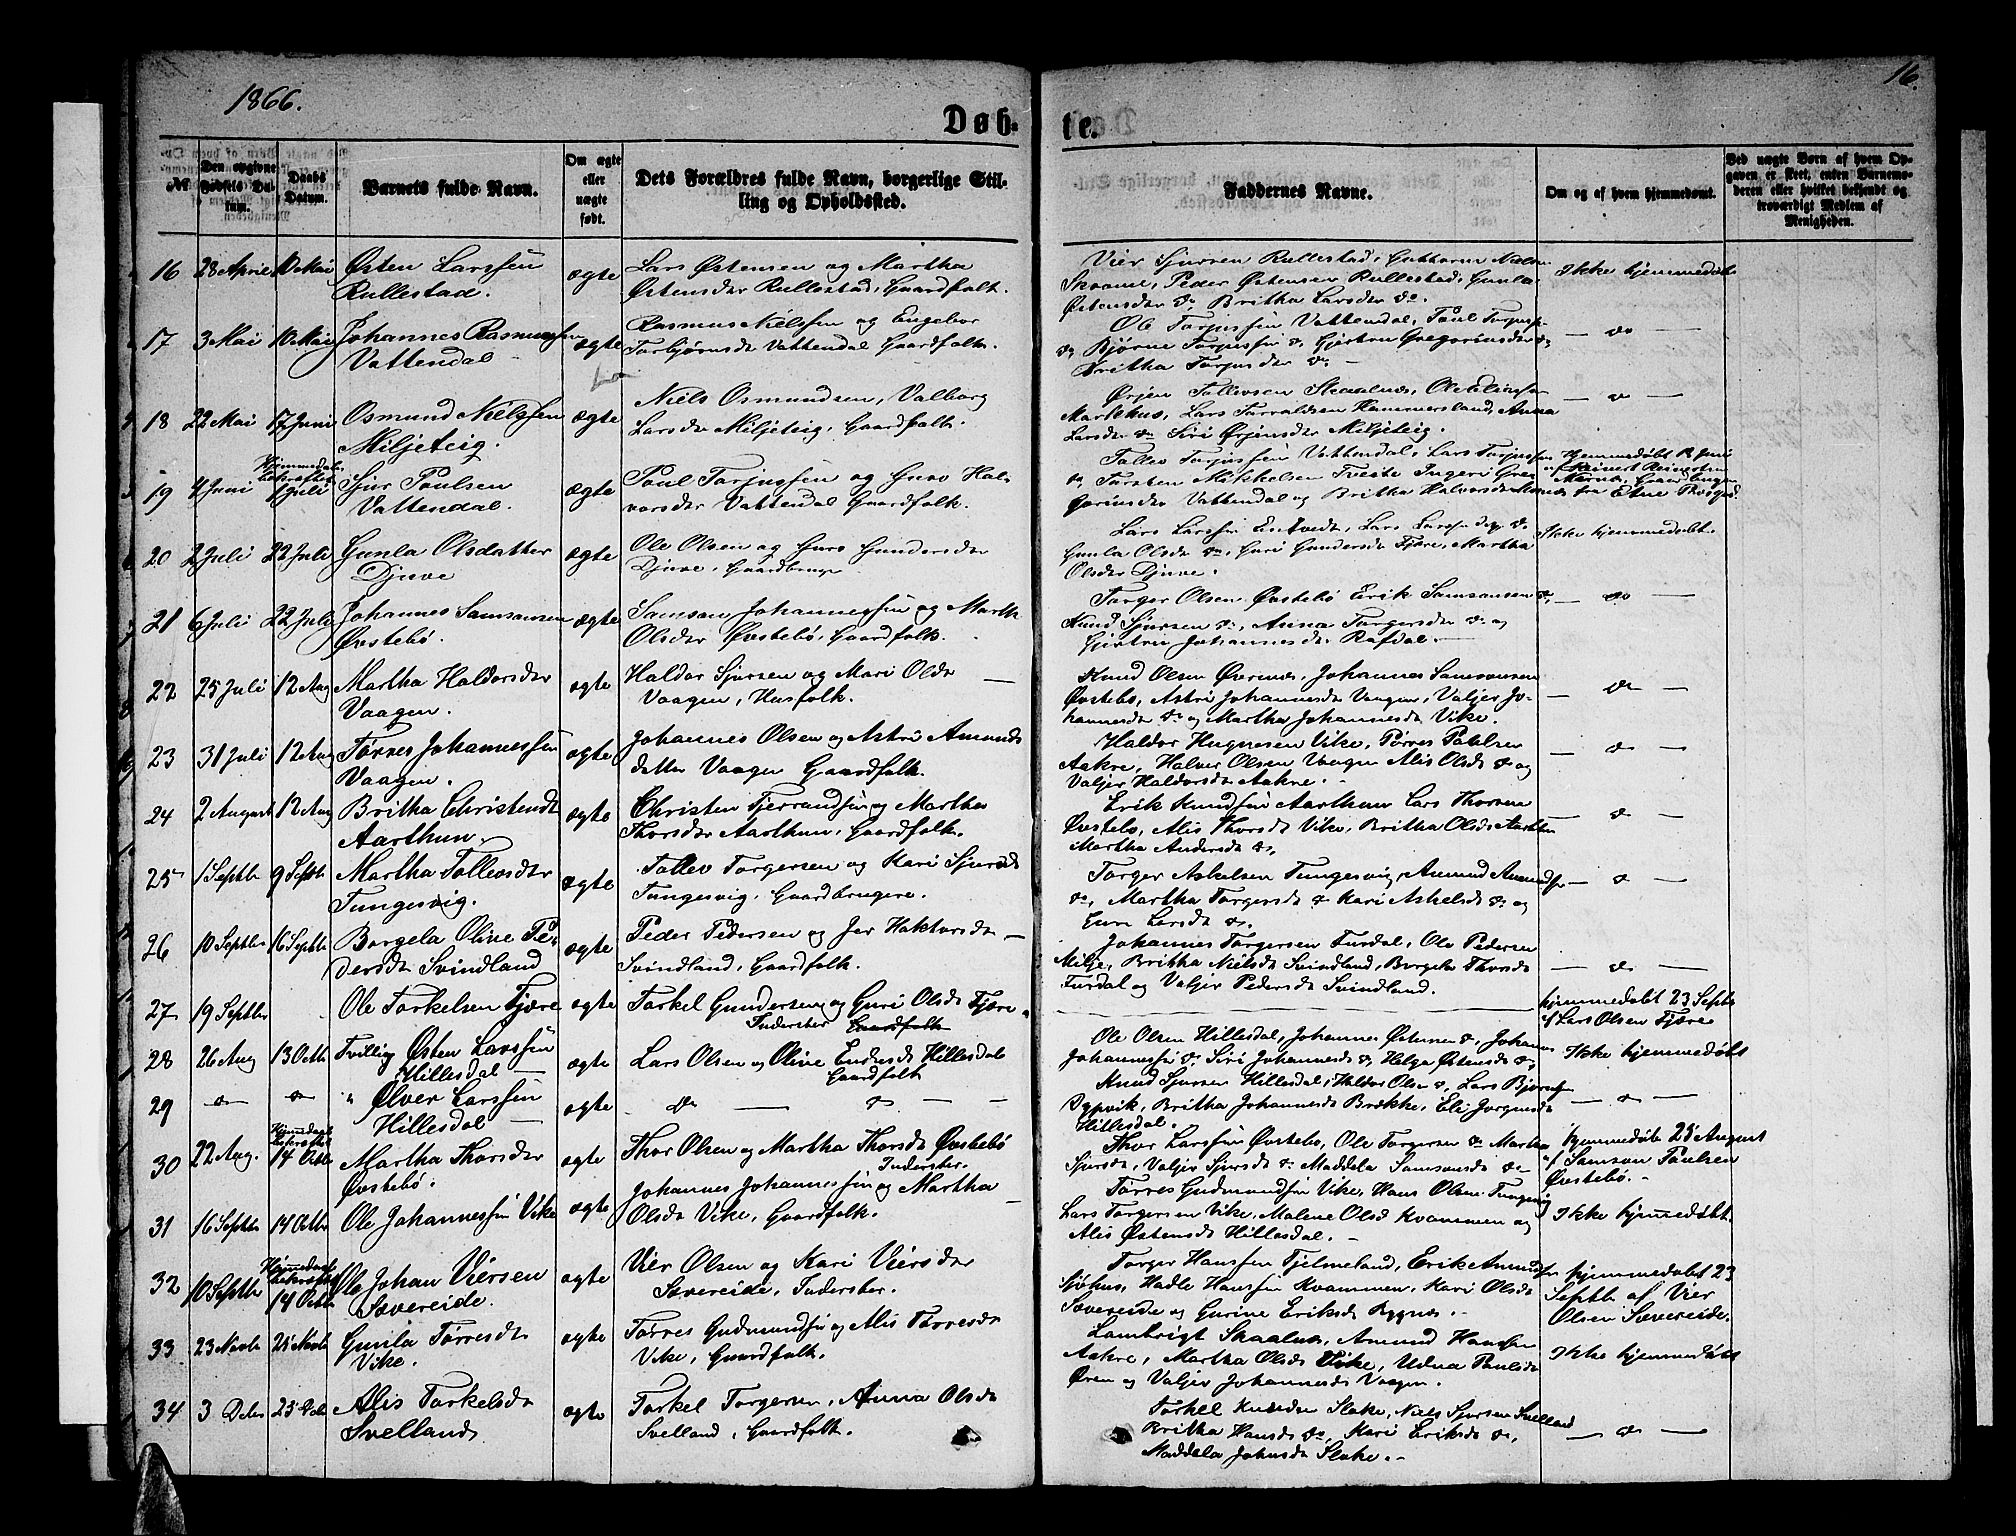 1866.
16.
Døb-
te.
№
Den opgivne Fødsels Datum.
Daabs Datum.
Barnets fulde Navn.
Om ægte eller uægte født.
Dets Forældres fulde Navn, borgerlige Stilling og Opholdssted.
Faddernes Navne.
Om og af hvem hjemmedøbt.
Ved uægte Børn af hvem Opgaven er skeet, enten Barnemoderen eller hvilket bekjendt og troværdigt Medlem af Menigheden.
16 28 April 10 Mai Østen Larssen ægte Lars Østensen og Martha
Rullestad. Østensdtr Rullestad, Gaardfolk.
Vier Sjursen Rullestad, Guthorm Nielsen
Skaane, Peder Østensen Rullestad, Gunla
Østensdtr do Britha Larsdtr do.
Ikke hjemmedøbt
17 3 Mai 10 Mai Johannes Rasmussen ægte Rasmus Nielssen og Engebor
Vattendal Torbjørnsdt Vattendal Gaardfolk.
Ole Torjussen Vattendal, Poul Torjuss.
do Bjørne Torjussen do, Gjertru Gregoriusdtr do
Britha Torjusdtr do
— do —
18 22 Mai 17 Juni Osmund Nielssen ægte Niels Osmundsen, Valborg
Miljeteig. Larsdtr Miljeteig, Gaardfolk.
Ørjen Tollevsen Skaalnæs, Ole Elingsen
Markhus, Lars Torvaldsen Hammersland, Anna
Larsdtr do Siri Ørjensdtr Miljeteig.
— do —
19 4 Juni 1 Juli Sjur Poulsen ægte Poul Torjussen og Guro Hal-
Vattendal. vorsdtr Vattendal Gaardfolk.
Tollev Torjussen Vattendal, Lars Torjussen
do, Torsten Mikkelsen Tveite Ingeri Gre-
goriusdtr Vattendal og Britha Halvorsdtr
fra Etne
20 2 Juli 22 Juli Gunla Olsdatter ægte Ole Olsen og Guro Gundersdtr
Djuve Djuve, Gaardbruger
Lars Larssen Lars Larssen do
Gunla Olsdt do, Guri Gundersdt Fjære, Martha
Olsdtr Djuve.
Ikke hjemmedøbt.
21 6 Juli 22 Juli Johannes Samsonsen ægte Samson Johannessen og Martha
Øvstebø. Olsdtr Øvstebø, Gaardfolk.
Torger Olsen Øvstebø Erik Samsonsen do,
Knud Sjursen do, Anna Torgersdtr do og
Gjertru Johannesdt Rafdal.
— do —
22 25 Juli 12 Aug Martha Haldorsdtr ægte Haldor Sjursen og Mari Olsdt
Vaagen. Vaagen, Husfolk.
Knud Olsen Øvrenæs, Johannes Samsonsen
Øvstebø, Astri Johannesdt Vaagen, Valjer Jo-
hannesdt do og Martha Johannesdt Vike.
— do —
23 31 Juli 12 Aug Tørres Johannessen ægte Johannes Olsen og Astri Amunds
Vaagen. datter Vaagen Gaardfolk.
Haldor Hugnesen Vike, Tørres Poulsen
Aakre, Halvor Olsen Vaagen Alis Olsdt do og
Valjer Haldorsdt Aakre.
— do —
24 2 August 12 Aug Britha Christensdt ægte Christen Fjerrandsen og Martha
Aarthun. Thorsdtr Aarthun, Gaardfolk.
Erik Knudsen Aarthun Lars Thorsen
Øvstebø, Alis Thorsdt Vike, Britha Olsdt Aarthun
Martha Andersdt do,
— do —
25 1 Septb 9 Septb Martha Tollevsdtr ægte Tollev Torgersen og Kari Sjursdt
Tungesvig. Tungesvig, Gaardbrugere.
Torger Askelsen Tungesvig, Amund Amundsen
do, Martha Torgersdt do Kari Askelsdt do og
Guro Larsdt do.
— do —
26 10 Septbr 16 Septb Borgela Olive Pe- ægte Peder Pedersen og
dersdt Svindland Svindland, Gaardfolk.
Johannes Torgersen Furdal, Ole Pedersen
Milje, Britha Nielsdt Svindland, Borgela Thorsdt
Furdal og Valjer Pedersdt Svindland.
— do —
27 19 Septbr Ole Torkelsen Fjære ægte Torkel Gundersen og Guri Olsdt Fjære
Inderster Gaardfolk
hjemmedøbt 23 Septb
af Lars Olsen Fjære
28 26 Aug 13 Octb Tvilling Østen Larssen ægte Lars Olsen og Olive Endresdt Hillesdal
Hillesdal Gaardfolk
Ole Olsen Hillesdal, Johannes Østensen do, Johannes
Johannessen do Siri Johannesdt do, Helga Østensdt do,
Ikke hjemmedøbt
29 do do " Ølver Larssen ægte do — do —
Hillesdal
Knud Sjursen Hillesdal, Haldor Olsen do, Lars Bjørnsen
Dypvik, Britha Johannesdt Brække, Eli Jorgensdt
Hillesdal.
— do —
30 22 Aug. 14 Octb Martha Thorsdtr ægte Thor Olsen og Martha Thorsdt Øvstebø
Øvstebø. Inderster.
Thor Larssen Øvstebø, Ole Torgersen do Martha
Sjursdt, Valjer Sjursdt do Maddela Samsonsdt do
hjemmedøbt 25 August
af Samson Poulsen
Øvstebø.
31 16 Septbr 14 Octbr Ole Johannessen Vike ægte Johannes Johannessen og Martha
Olsdt Vike, Gaardfolk.
Tørres Gudmundsen Vike, Hans Olsen Tungesvig
Lars Torgersen Vike, Malene Olsd Kvammen og
Alis Østensdt Hillesdal.
Ikke hjemmedøbt.
32 10 Septbr 14 Octbr Ole Johan Viersen ægte Vier Olsen og Kari Viersdtr
Sævereide. Sævereide, Inderster.
Torger Hanssen Fjelmeland, Erik Amundsen
Sjøhus, Hadle Hanssen Kvammen, Kari Olsdt
Sævereide og Gurine Eriksdt Rygnæs.
hjemmedøbt 23
Septb af Vier
Olsen Sævereide.
33 23 Novb 25 Novb Gunila Tørresdt ægte Tørres Gudmundsen og Alis Thoresdt
Vike. Vike, Gaardfolk.
Lambrigt Skaalnæs, Amund Hanssen
Aakre, Martha Olsdt Vike, Udna Poulsdt
Øren og Valjer Johannesdt Vaagen.
Ikke hjemmedøbt
34 3 Decbr 25 Dcb Alis Torkelsdt ægte Torkel Torgersen, Anna Olsdt
Svelland Svelland, Gaardfolk.
Torkel Knudsen Sloke, Niels Sjursen Svelland
Britha Hansdt do, Mari Eriksdt do,
Maddela Johnsdt Sloke.
— do —